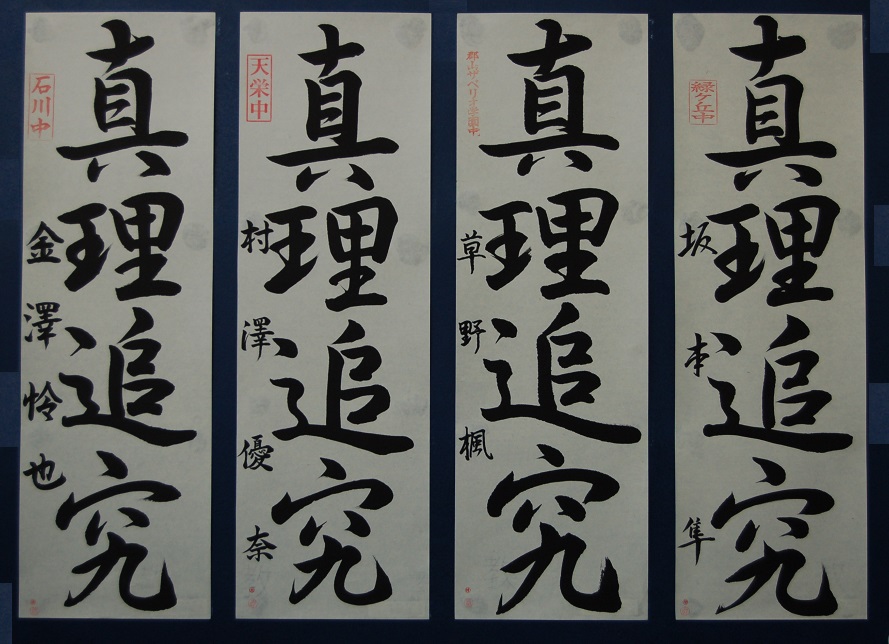 真理追究
石川中
金澤怜也
真理追究
天栄中
村澤優奈
真理追究
草野楓
真理追究
緑ケ丘中
坂本隼